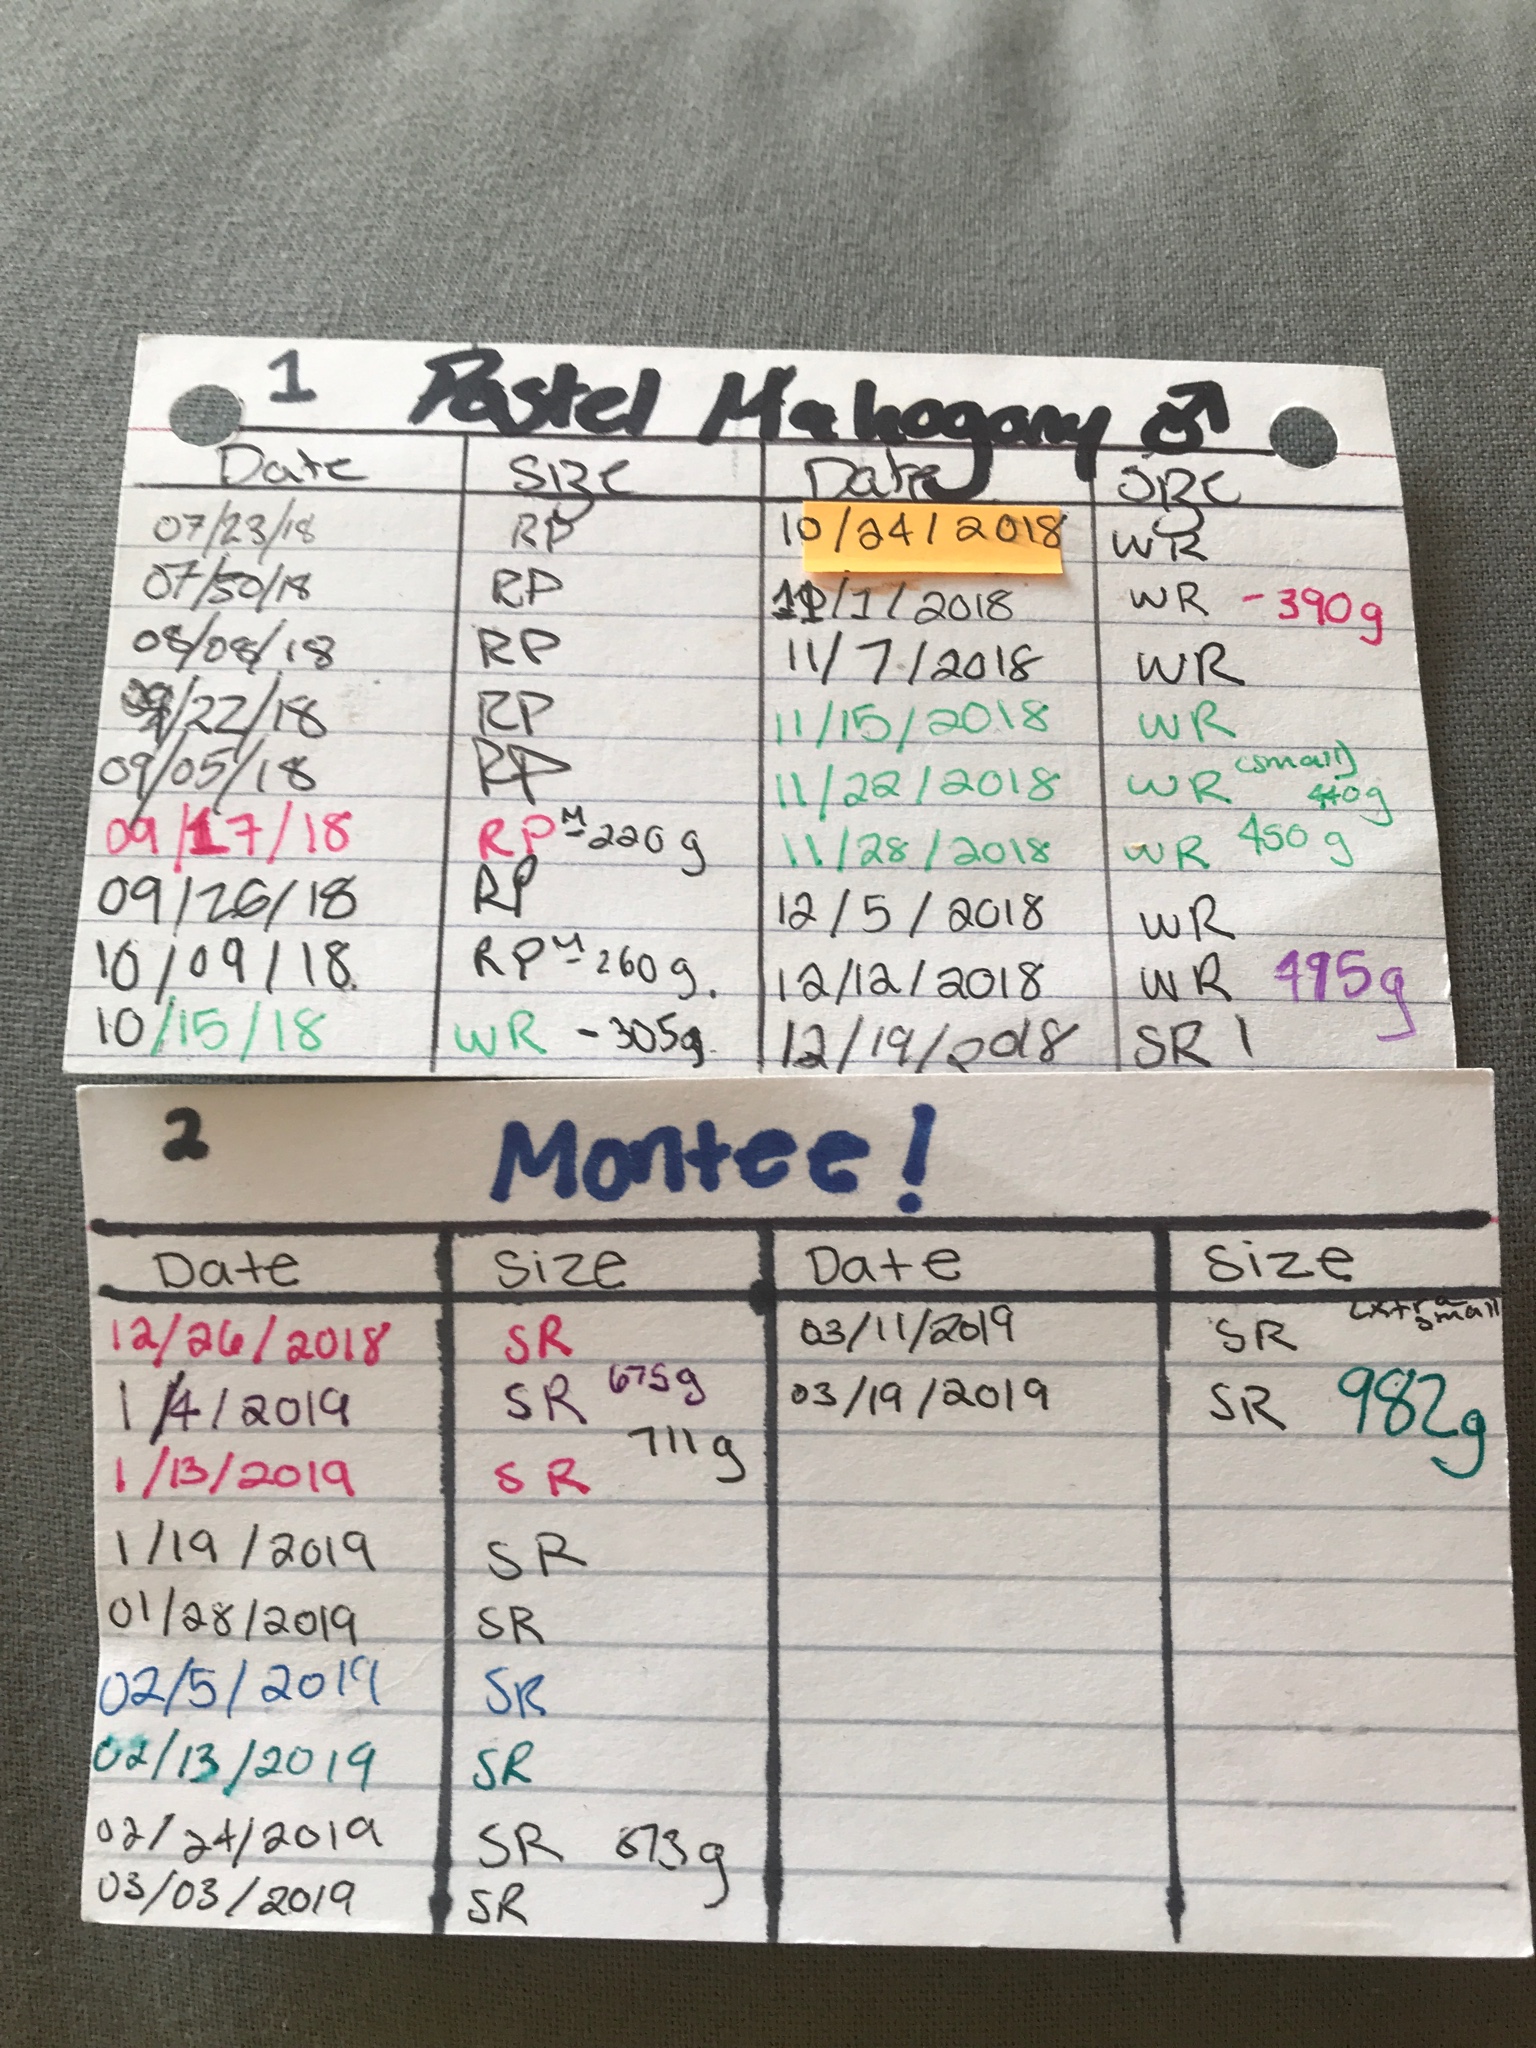 1 Pastel Mahogany ♂
Date Size Date Size
07/23/18 RP 10/24/2018 WR
07/30/18 RP 11/1/2018 WR - 390g
08/08/18 RP 11/7/2018 WR
/22/18 RP 11/15/2018 WR
09/05/18 RP 11/22/2018 WR (small) 440g
09/17/18 RP M - 220g 11/28/2018 WR 450g
09/26/18 RP 12/5/2018 WR
10/09/18 RP M - 260g. 12/12/2018 WR 495g
10/15/18 WR - 305g 12/19/2018 SR 1
2 Montee!
Date Size Date Size
12/26/2018 SR 03/11/2019 SR extra small
1/4/2019 SR 675g 03/19/2019 SR 982g
1/13/2019 SR 711g
1/19/2019 SR
01/28/2019 SR
02/5/2019 SR
02/13/2019 SR
02/24/2019 SR
03/03/2019 SR